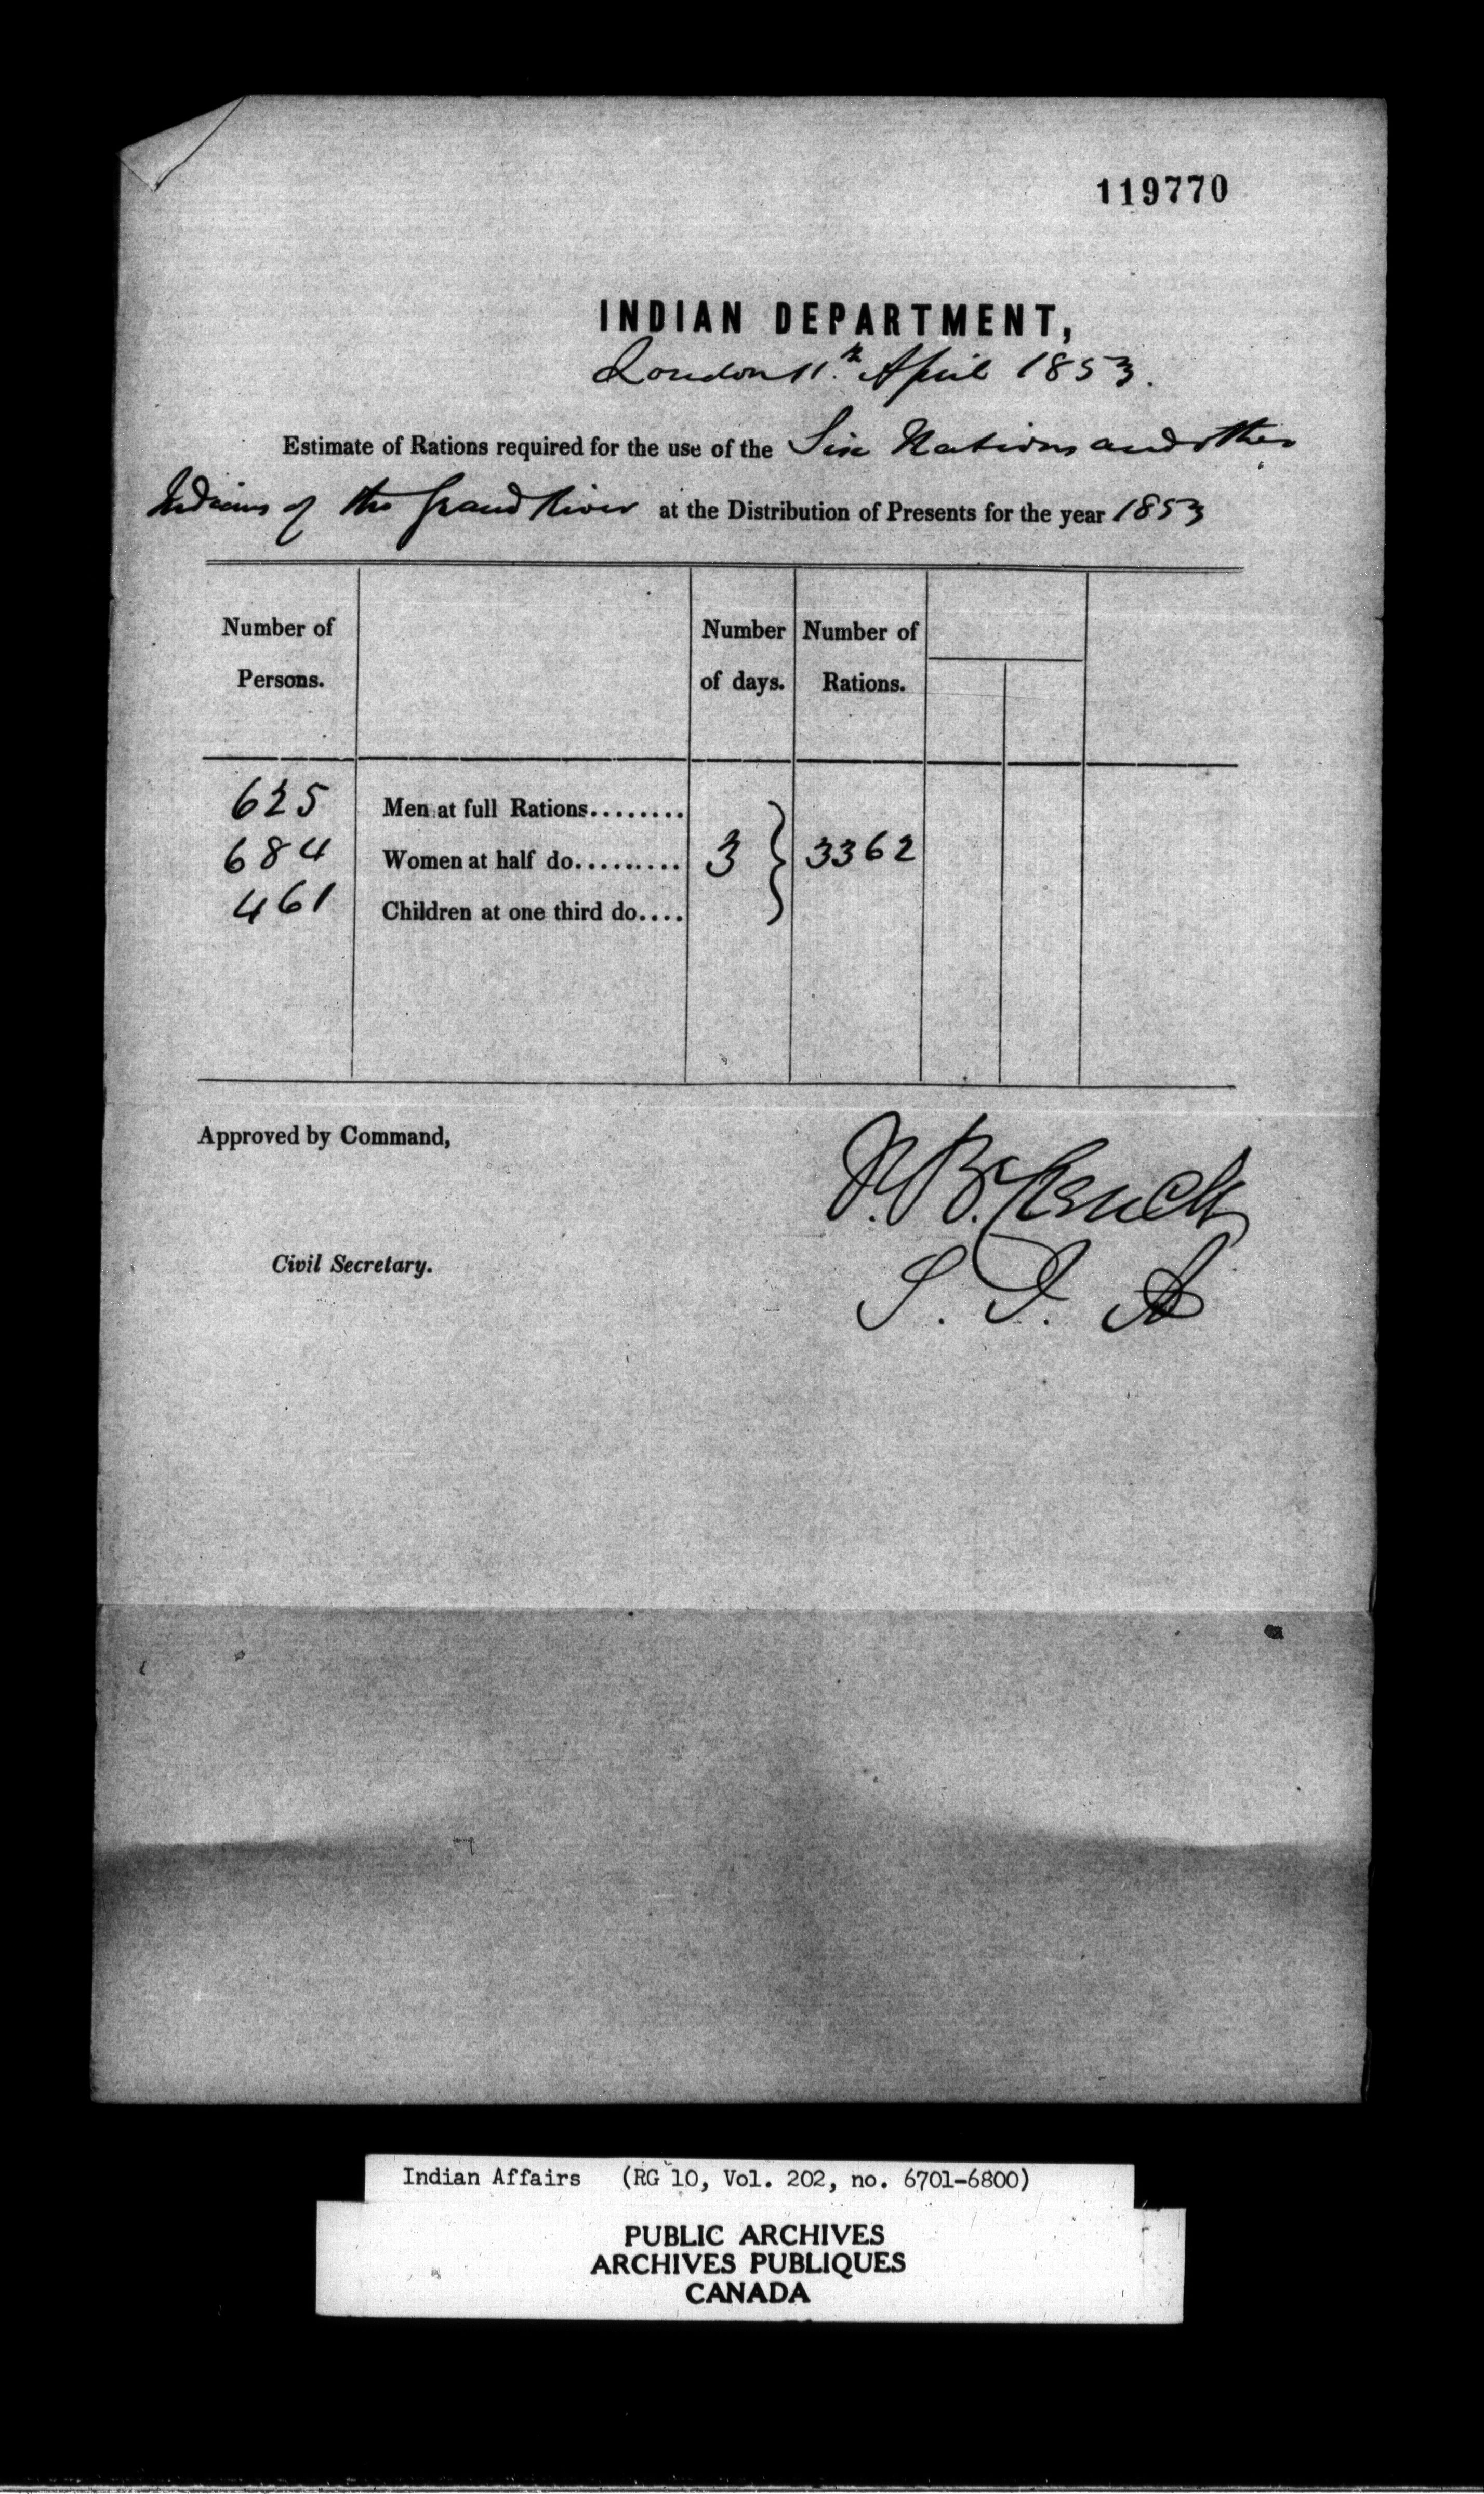 119770
INDIAN DEPARTMENT,
London 11.th April 1853.
Estimate of Rations required for the use of the Six Nations and other
Indians of the Grand River at the Distribution of Presents for the year 1853
Number of Persons. Number of days. Number of Rations.
625 Men at full Rations........
684 Women at half do......... 3 } 3362
461 Children at one third do....
Approved by Command,
Civil Secretary.
S. I. A
Indian Affairs (RG 10, Vol. 202, no. 6701-6800)
PUBLIC ARCHIVES
ARCHIVES PUBLIQUES
CANADA